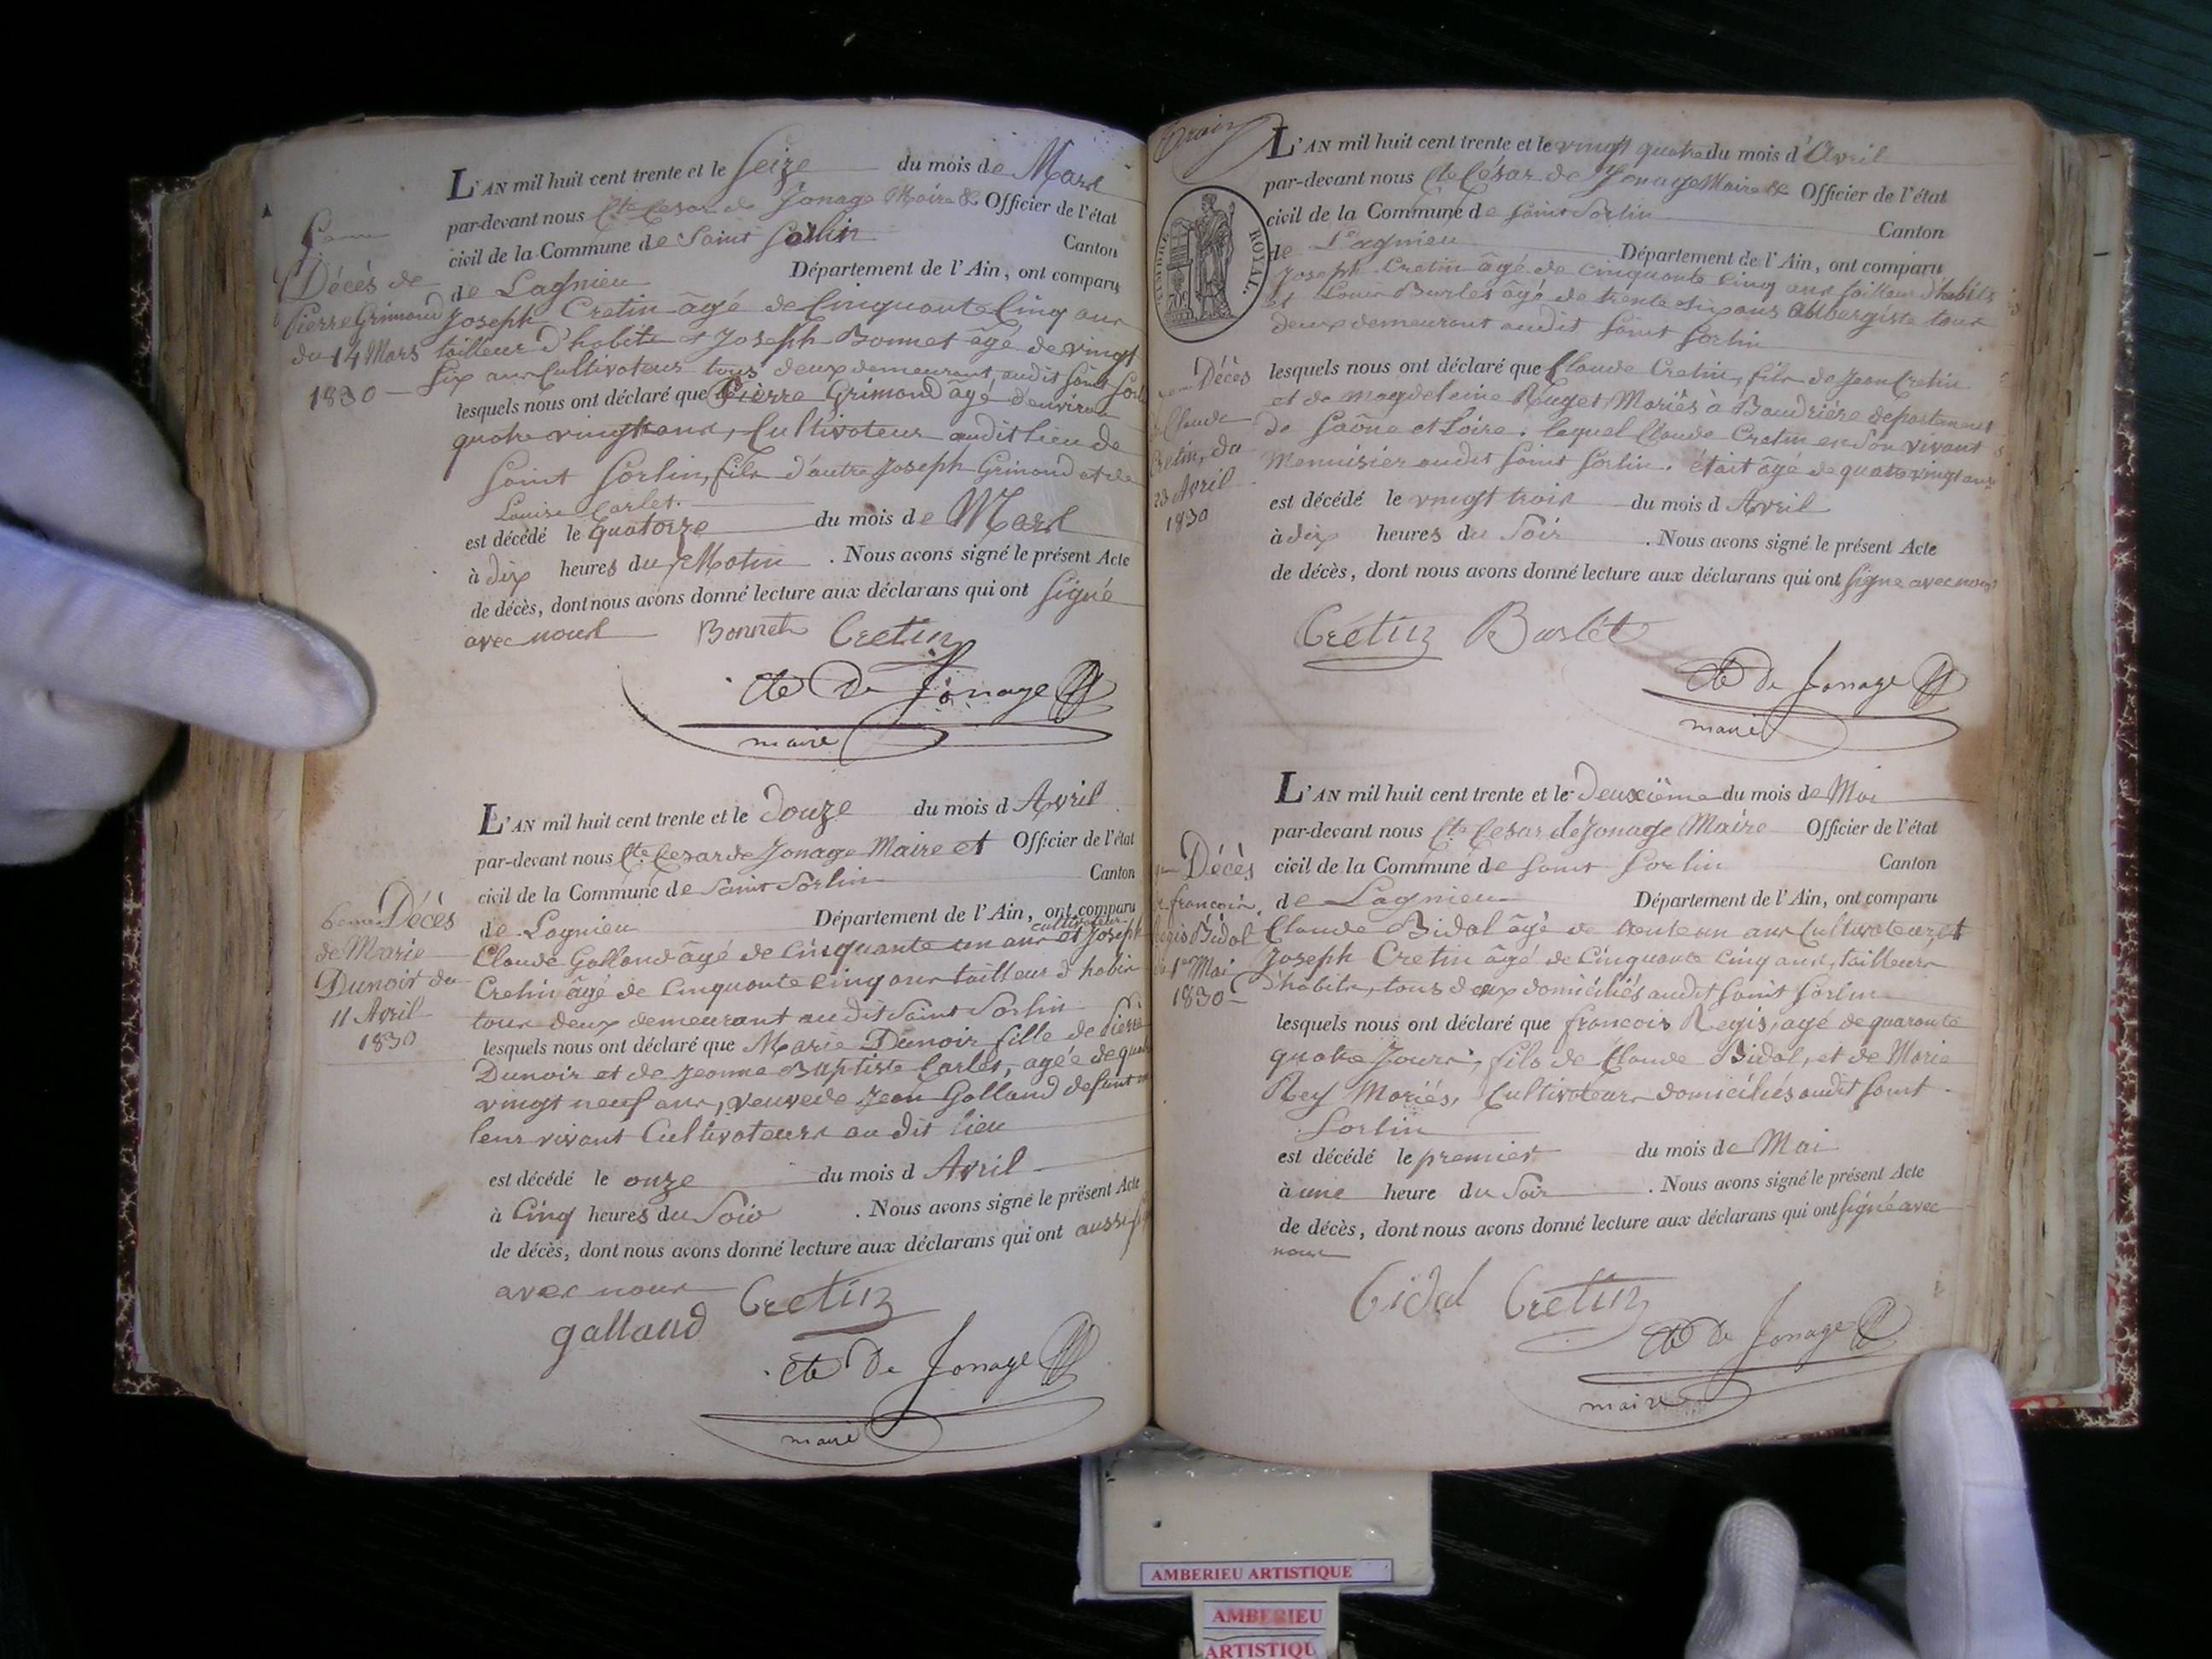 L'AN mil huit cent trente et le Seize du mois de Mars
par-devant nous Cte Cesar de Jonage Maire & Officier de l'état
civil de la Commune de Saint Sorlin Canton
de Lagnieu Département de l'Ain, ont comparu
Joseph Cretin âgé de Cinquante Cinq ans
tailleur d'habits et Joseph Bonnet âgé de vingt
Six ans Cultivateurs tous deux demeurant audit Saint Sorl
lesquels nous ont déclaré que Pierre Grimond âgé d'environ
quatre vingt ans, Cultivateur audit lieu de
Saint Sorlin, fils d'autre Joseph Grimond et de
Louise Carlet.
est décédé le quatorze du mois de Mars
à dix heures du Matin . Nous avons signé le présent Acte
de décès, dont nous avons donné lecture aux déclarans qui ont Signé
avec nous Bonnet Cretin
Cte De Jonage
maire
Décès de
Pierre Grimond
du 14 Mars
1830
L'AN mil huit cent trente et le Douze du mois d Avril
par-devant nous Cte Cesar de Jonage Maire et Officier de l'état
civil de la Commune de Saint Sorlin Canton
de Lagnieu Département de l'Ain, ont comparu
cultivateur
Claude Galland âgé de Cinquante un ans et Joseph
Cretin âgé de Cinquante Cinq ans tailleur d'habis
tous deux demeurant audit Saint Sorlin
lesquels nous ont déclaré que Marie Dunoir fille de Pierre
Dunoir et de Jeanne Baptiste Carlet, agée de quat
vingt neuf ans, veuve de Jean Galland defunt
leur vivant Cultivateurs au dit lieu
est décédé le onze du mois d Avril
à Cinq heures du Soir . Nous avons signé le présent Acte
de décès, dont nous avons donné lecture aux déclarans qui ont aussi
avec nous Cretin
galland
Cte De Jonage
maire
6eme Décès
de Marie
Dunoir du
11 Avril
1830
L'AN mil huit cent trente et le vingt quatre du mois d'Avril
par-devant nous Cte César de Jonage Maire & Officier de l'état
civil de la Commune de Saint Sorlin
Canton
de Lagnieu Département de l'Ain, ont comparu
Joseph Cretin âgé de Cinquante Cinq ans tailleur d'habits
et Louis Burlet âgé de trente Six ans Aubergiste tous
deux demeurant audit Saint Sorlin
lesquels nous ont déclaré que Claude Cretin, fils de Jean Cretin
et de Magdeleine Rouget, Mariés à Baudrière departement
de Saône et Loire. lequel Claude Cretin en son vivant
Menuisier audit Saint Sorlin. était âgé de quatre vingt ans
est décédé le vingt trois du mois d Avril
à dix heures du Soir . Nous avons signé le présent Acte
de décès, dont nous avons donné lecture aux déclarans qui ont Signé avec nous
Crétin Burlet
Cte De Jonage
maire
TIMBRE ROYAL.
Décès
Claude
Cretin, du
23 Avril
1830
L'AN mil huit cent trente et le Deuxième du mois de Mai
par-devant nous Cte Cesar de Jonage Maire Officier de l'état
civil de la Commune de Saint Sorlin Canton
de Lagnieu Département de l'Ain, ont comparu
Claude Bidal âgé de trente un ans Cultivateur, et
Joseph Cretin âgé de Cinquante Cinq ans, tailleur
d'habits, tous deux domiciliés audit Saint Sorlin
lesquels nous ont déclaré que françois Regis, agé de quarante
quatre Jours, fils de Claude Bidal, et de Marie
Rey Mariés, Cultivateurs domiciliés audit Saint
Sorlin
est décédé le premier du mois de Mai
à une heure du Soir . Nous avons signé le présent Acte
de décès, dont nous avons donné lecture aux déclarans qui ont signé avec
nous
Bidal Cretin
Cte De Jonage
maire
Décès
francois
Regis Bidal
1er Mai
1830
AMBERIEU ARTISTIQUE
AMBERIEU
ARTISTIQU